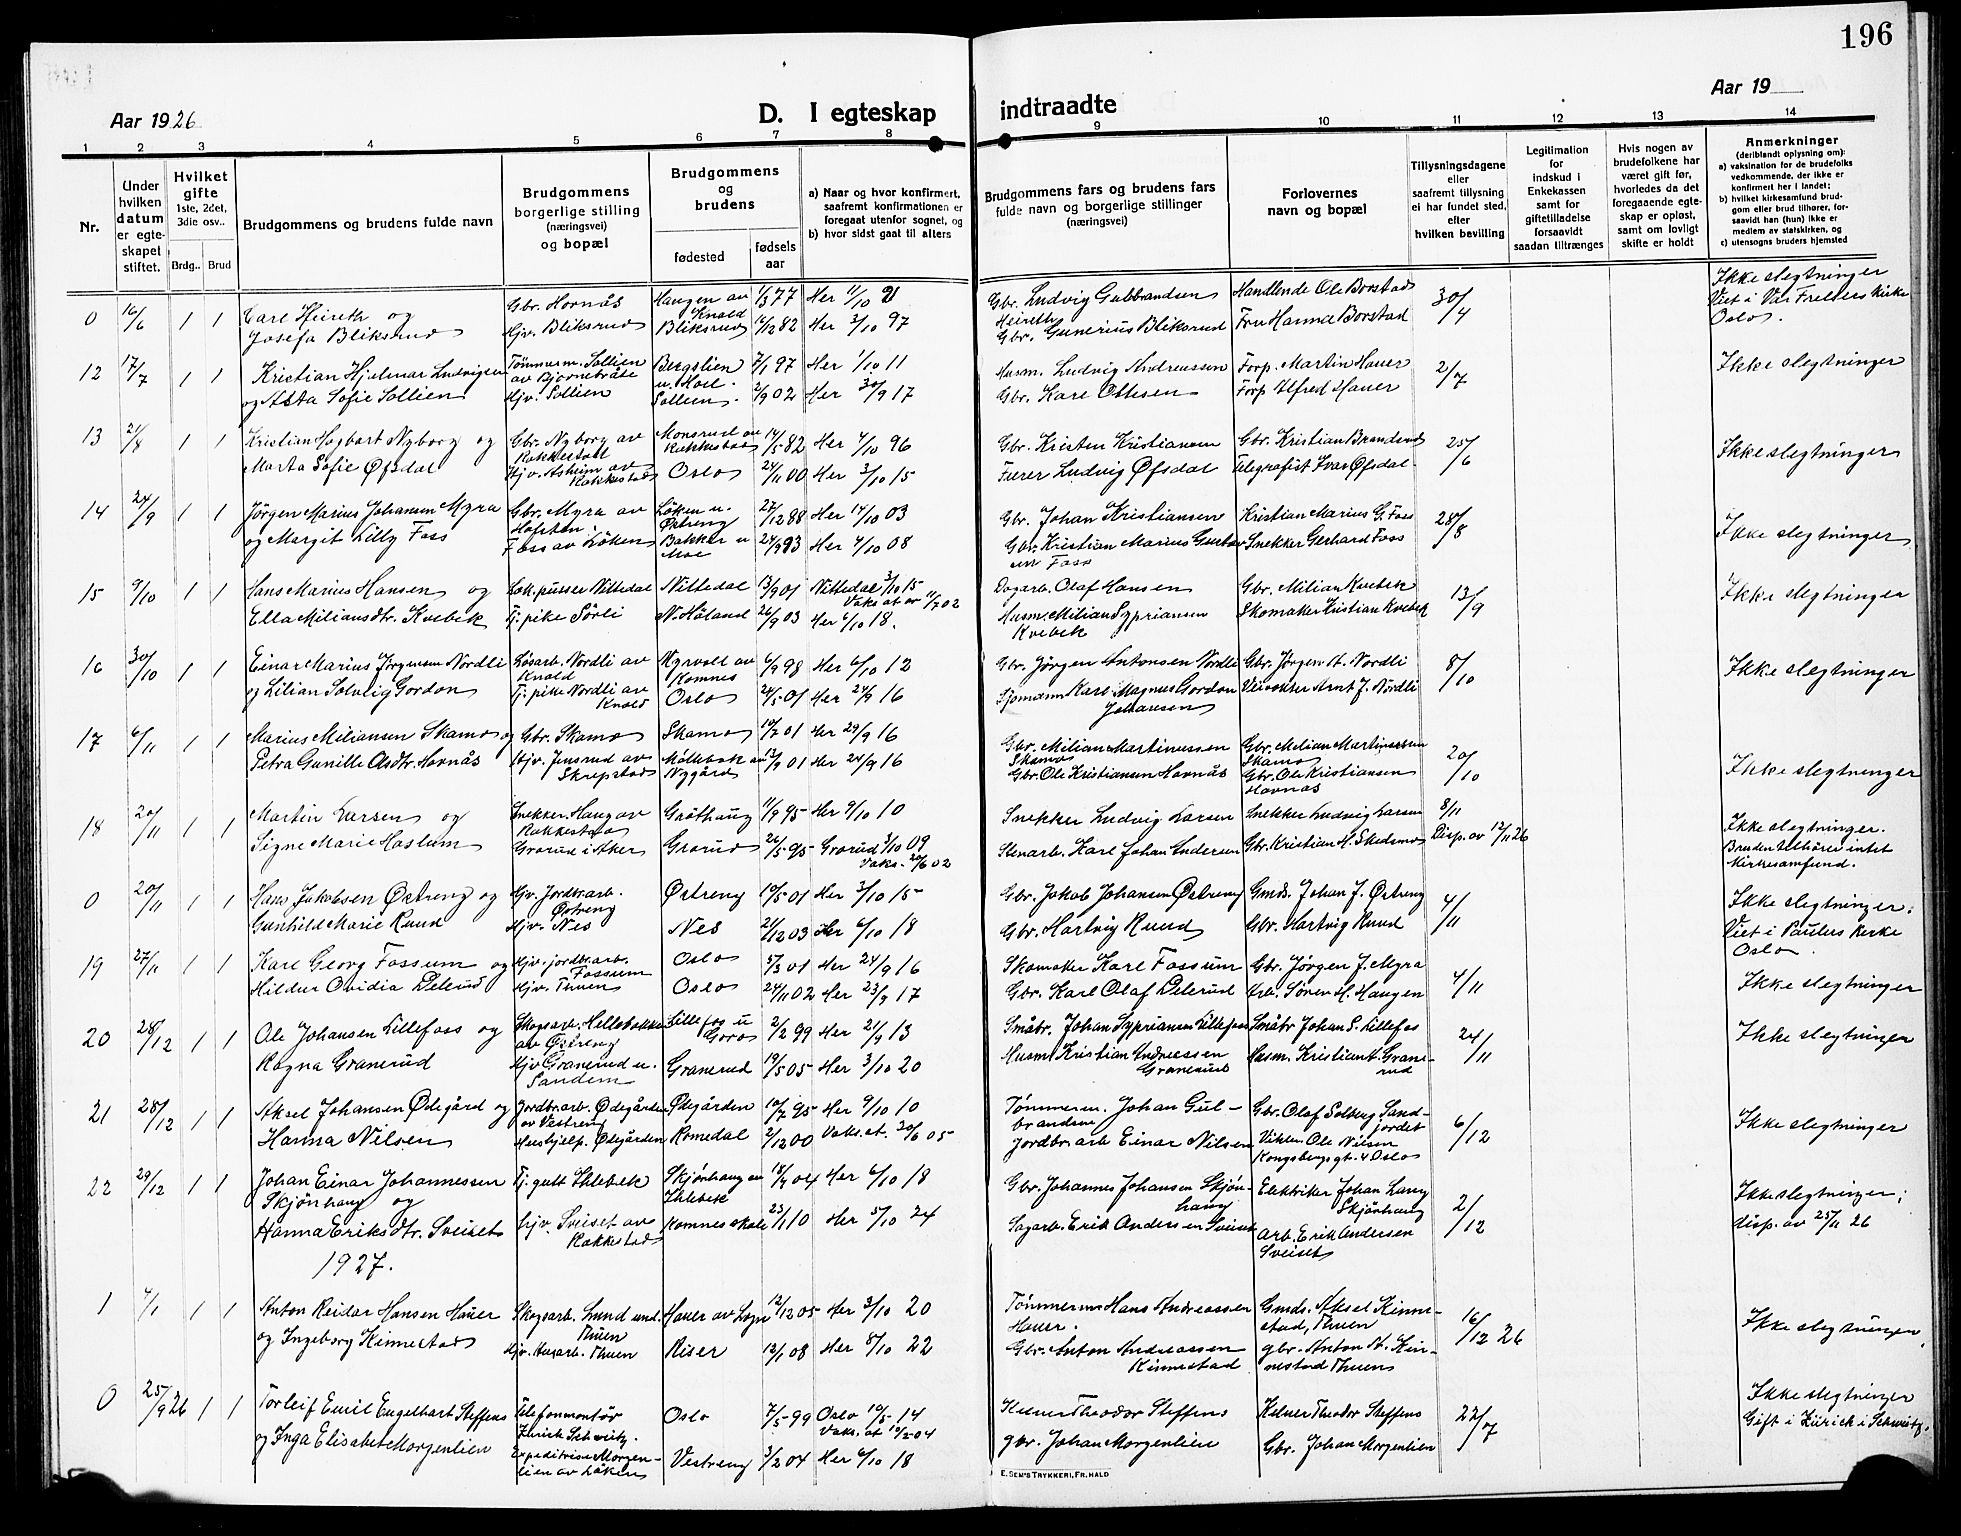 196
Aar 1926
D. I egteskap
indtraadte
Aar 19
1 2 3 4 5 6 7 8 9 10 11 12 13 14
Nr.
Under hvilken datum er egteskapet stiftet.
Hvilket gifte
1ste, 2det, 3die osv..
Brdg.. Brud
Brudgommens og brudens fulde navn
Brudgommens borgerlige stilling (næringsvei) og bopæl
Brudgommens og brudens
fødested
fødsels aar
a) Naar og hvor konfirmert, saafremt konfirmationen er foregaat utenfor sognet, og
b) hvor sidst gaat til alters
Brudgommens fars og brudens fars fulde navn og borgerlige stillinger (næringsvei)
Forlovernes navn og bopæl
Tillysningsdagene eller saafremt tillysning ei har fundet sted, efter hvilken bevilling
Legitimation for indskud i Enkekassen samt for giftetilladelse forsaavidt saadan tiltrænges
Hvis nogen av brudefolkene har været gift før, hvorledes da det foregaaende egteskap er opløst, samt om lovligt skifte er holdt
Anmerkninger
(deriblandt oplysning om):
a) vaksination for de brudefolks vedkommende, der ikke er konfirmert her i landet;
b) hvilket kirkesamfund brudgom eller brud tilhører, forsaavidt han (hun) ikke er medlem av statskirken, og
c) utensogns bruders hjemsted
0 16/6 1 1 Carl Heireth og Gbr. Hornås Haugen av Knold 1/3 77 Her 11/10 Gbr. Ludvig Gulbrandsen Heireth Handlende Ole Borstad 30/4 Ikke slegtninger
Josefa Bliksrud Hjv. Bliksrud Bliksrud 16/12 82 Her 3/10 97 Gbr. Gunerius Bliksrud Fru Hanna Borstad Viet i Vår Frelsers kirke Oslo.
12 17/7 1 1 Kristian Hjalmar Ludvigsen Tømmerm. Sollien av Bjørnebråte Bergslien u. Hoel. 7/1 97 Her 1/10 11 Husm. Ludvig Andreassen Forp. Martin Hauer 2/7 Ikke slegtninger
og Asta Sofie Sollien Hjv. Sollien Sollien. 2/9 02 Her 30/9 17 Gbr. Karl Ottesen Forp. Alfred Hauer
13 21/8 1 1 Kristian Hagbart Nyborg og Gbr. Nyborg av Rakkestad Monsrud av Rakkestad 14/5 82 Her 4/10 96 Gbr. Kristen Kristiansen Gbr. Kristian Brandsrud 25/6 Ikke slegtninger
Marta Sofie Øfsdal Hjv. Asheim av Rakkestad Oslo 24/11 00 Her 3/10 15 Furer Ludvig Øfsdal Telegrafist Ivar Øfsdal
14 24/9 1 1 Jørgen Marius Johansen Myra Gbr. Myra av Hofsten. Løken u. Østreng 27/12 88 Her 14/10 03 Gbr. Johan Kristiansen Kristian Marius G. Foss 28/8 Ikke slegtninger
og Margit Lilly Foss Foss av Løken Bakker u Moe 24/9 93 Her 4/10 08 Gbr. Kristian Marius Gustavsen Foss Snekker Gerhard Foss
15 9/10 1 1 Hans Marius Hansen og Lok. pusser Nittedal Nittedal 13/9 01 Nittedal 3/10 15 Vaks at av 11/7 02 Dagarb. Olaf Hansen Gbr. Milian Kvebek 13/9 Ikke slegtninger
Ella Miliansdtr. Kvebek Tj. pike Sørli N. Høland 26/9 03 Her 6/10 18. Husm. Milian Sypriansen Kvebek Skomaker Kristian Kvebek
16 30/10 1 1 Einar Marius Jørgensen Nordli Løsarb. Nordli av Knold Myrvold av Komnes 6/9 98 Her 6/10 12 Gbr. Jørgen Antonsen Nordli Gbr. Jørgen A. Nordli 8/10 Ikke slegtninger
og Lilian Solveig Gordon Tj. pike Nordli av Knold Oslo 24/5 01 Her 24/9 16 Sjømann Karl Magnus Gordon Johansen Veivokter Arnt J. Nordli
17 6/11 1 1 Marius Miliansen Skamo og Gbr. Skamo Skamo 10/7 01 Her 29/9 16 Gbr. Milian Martinussen Skamo Gbr. Milian Martinussen Skamo 20/10 Ikke slegtninger
Petra Gunille Olsdtr. Hornås Hjv. Jensrud av Skrepstad Møllebak av Nygård 13/9 01 Her 24/9 16 Gbr. Ole Kristiansen Hornås Gbr. Ole Kristiansen Hornås
18 20/11 1 1 Martin Larsen og Snekker Haug av Rakkestad Gråthaug 11/9 95 Her 9/10 10 Snekker Ludvig Larsen Snekker Ludvig Larsen 8/11 Ikke slegtninger.
Signe Marie Haslum Grorud i Aker Grorud 26/5 95 Grorud 3/10 09 Vaks. 20/6 02 Stenarb. Karl Johan Andersen Gbr. Kristian H. Skedsmo Disp. av 12/11 26 Bruden tilhører intet kirkesamfund.
0 20/11 1 1 Hans Jakobsen Østreng og Hjv. Jordbr.arb. Østreng Østreng 10/5 01 Her 3/10 15 Gbr. Jakob Johansen Østreng Gmds. Johan J. Østreng 4/11 Ikke slegtninger.
Gunhild Marie Ruud Hjv. Nes Nes 21/12 03 Her 6/10 18 Gbr. Hartvig Ruud Gbr. Hartvig Ruud Viet i Paulus kirke Oslo.
19 27/11 1 1 Karl Georg Fossum og Hjv. jordbr.arb. Fossum Oslo 5/3 01 Her 24/9 16 Skomaker Karl Fossum Gbr. Jørgen J. Myra 4/11 Ikke slegtninger
Hildur Ovidia Delerud Hjv. Thuen Oslo 24/11 02 Her 23/9 17 Gbr. Karl Olaf Delerud Arb. Søren M. Haugen
20 28/12 1 1 Ole Johansen Lillefoss og Skogsarb. Hellebekk av Østreng Lillefos u Goros 2/2 99 Her 21/9 13 Småbr. Johan Sypriansen Lillefoss Småbr Johan S. Lillefos 24/11 Ikke slegtninger
Ragna Granerud Hjv Granerud u. Sandem Granerud 19/5 05 Her 3/10 20 Husm. Kristian Andreassen Granerud Husm. Kristian A. Granerud
21 28/12 1 1 Aksel Johansen Ødegård og Jordbr.arb. Ødegården av Vestreng Ødegården 10/7 95 Her 9/10 10 Tømmerm. Johan Gulbrandsen Gbr. Olaf Solberg Sandjordet 6/12 Ikke slegtninger
Hanna Nilsen Hushjelp. Ødegården Romedal 2/12 00 Vaks. at. 20/6 05 Jordbr. arb Einar Nilsen Viktm. Ole Nilsen Kongsbergsgt. 4 Oslo
22 29/12 1 1 Johan Einar Johannessen Skjønhaug og Tj. gutt Ihlebek Skjønhaug av Ihlebek 18/9 04 Her 6/10 18 Gbr. Johannes Johansen Skjønhaug Elektriker Johan Laug Skjønhaug 2/12 Ikke slegtninger;
Hanna Eriksdtr. Sveiset Hjv. Sveiset av Rakkestad Komnes skole 23/1 10 Her 5/10 24 Sagarb. Erik Andersen Sveiset Arb. Erik Andersen Sveiset disp. av 25/11 26
1927.
1 4/1 1 1 Anton Reidar Hansen Hauer Skogsarb. Lund und. Thuen Hauer av Logn 12/12 05 Her 3/10 20 Tømmerm Hans Andreassen Hauer. Gmds. Aksel Kinnestad, Thuen 16/12 26 Ikke slegtninger
og Ingeborg Kinnestad Hjv. Husarb. Thuen Riser 12/1 08 Her 8/10 22 Gbr. Anton Andreassen Kinnestad gbr. Anton A. Kinnestad Thuen
0 25/9 26 1 1 Torleif Emil Engelhart Steffens Telefonmontør Zurich Schweitz. Oslo 7/5 99 Oslo 10/5 14 Vaks. at 10/2 04 Kelner Theodor Steffens Kelner Theodor Steffens 22/7 Ikke slegtninger
og Inga Elisabet Morgenlien Expeditrise Morgenlien av Løken Vestreng 3/2 04 Her 6/10 18 gbr. Johan Morgenlien Gbr. Johan Morgenlien Gift i Zürich i Schweitz.
E. SEM'S TRYKKERI, FR. HALD